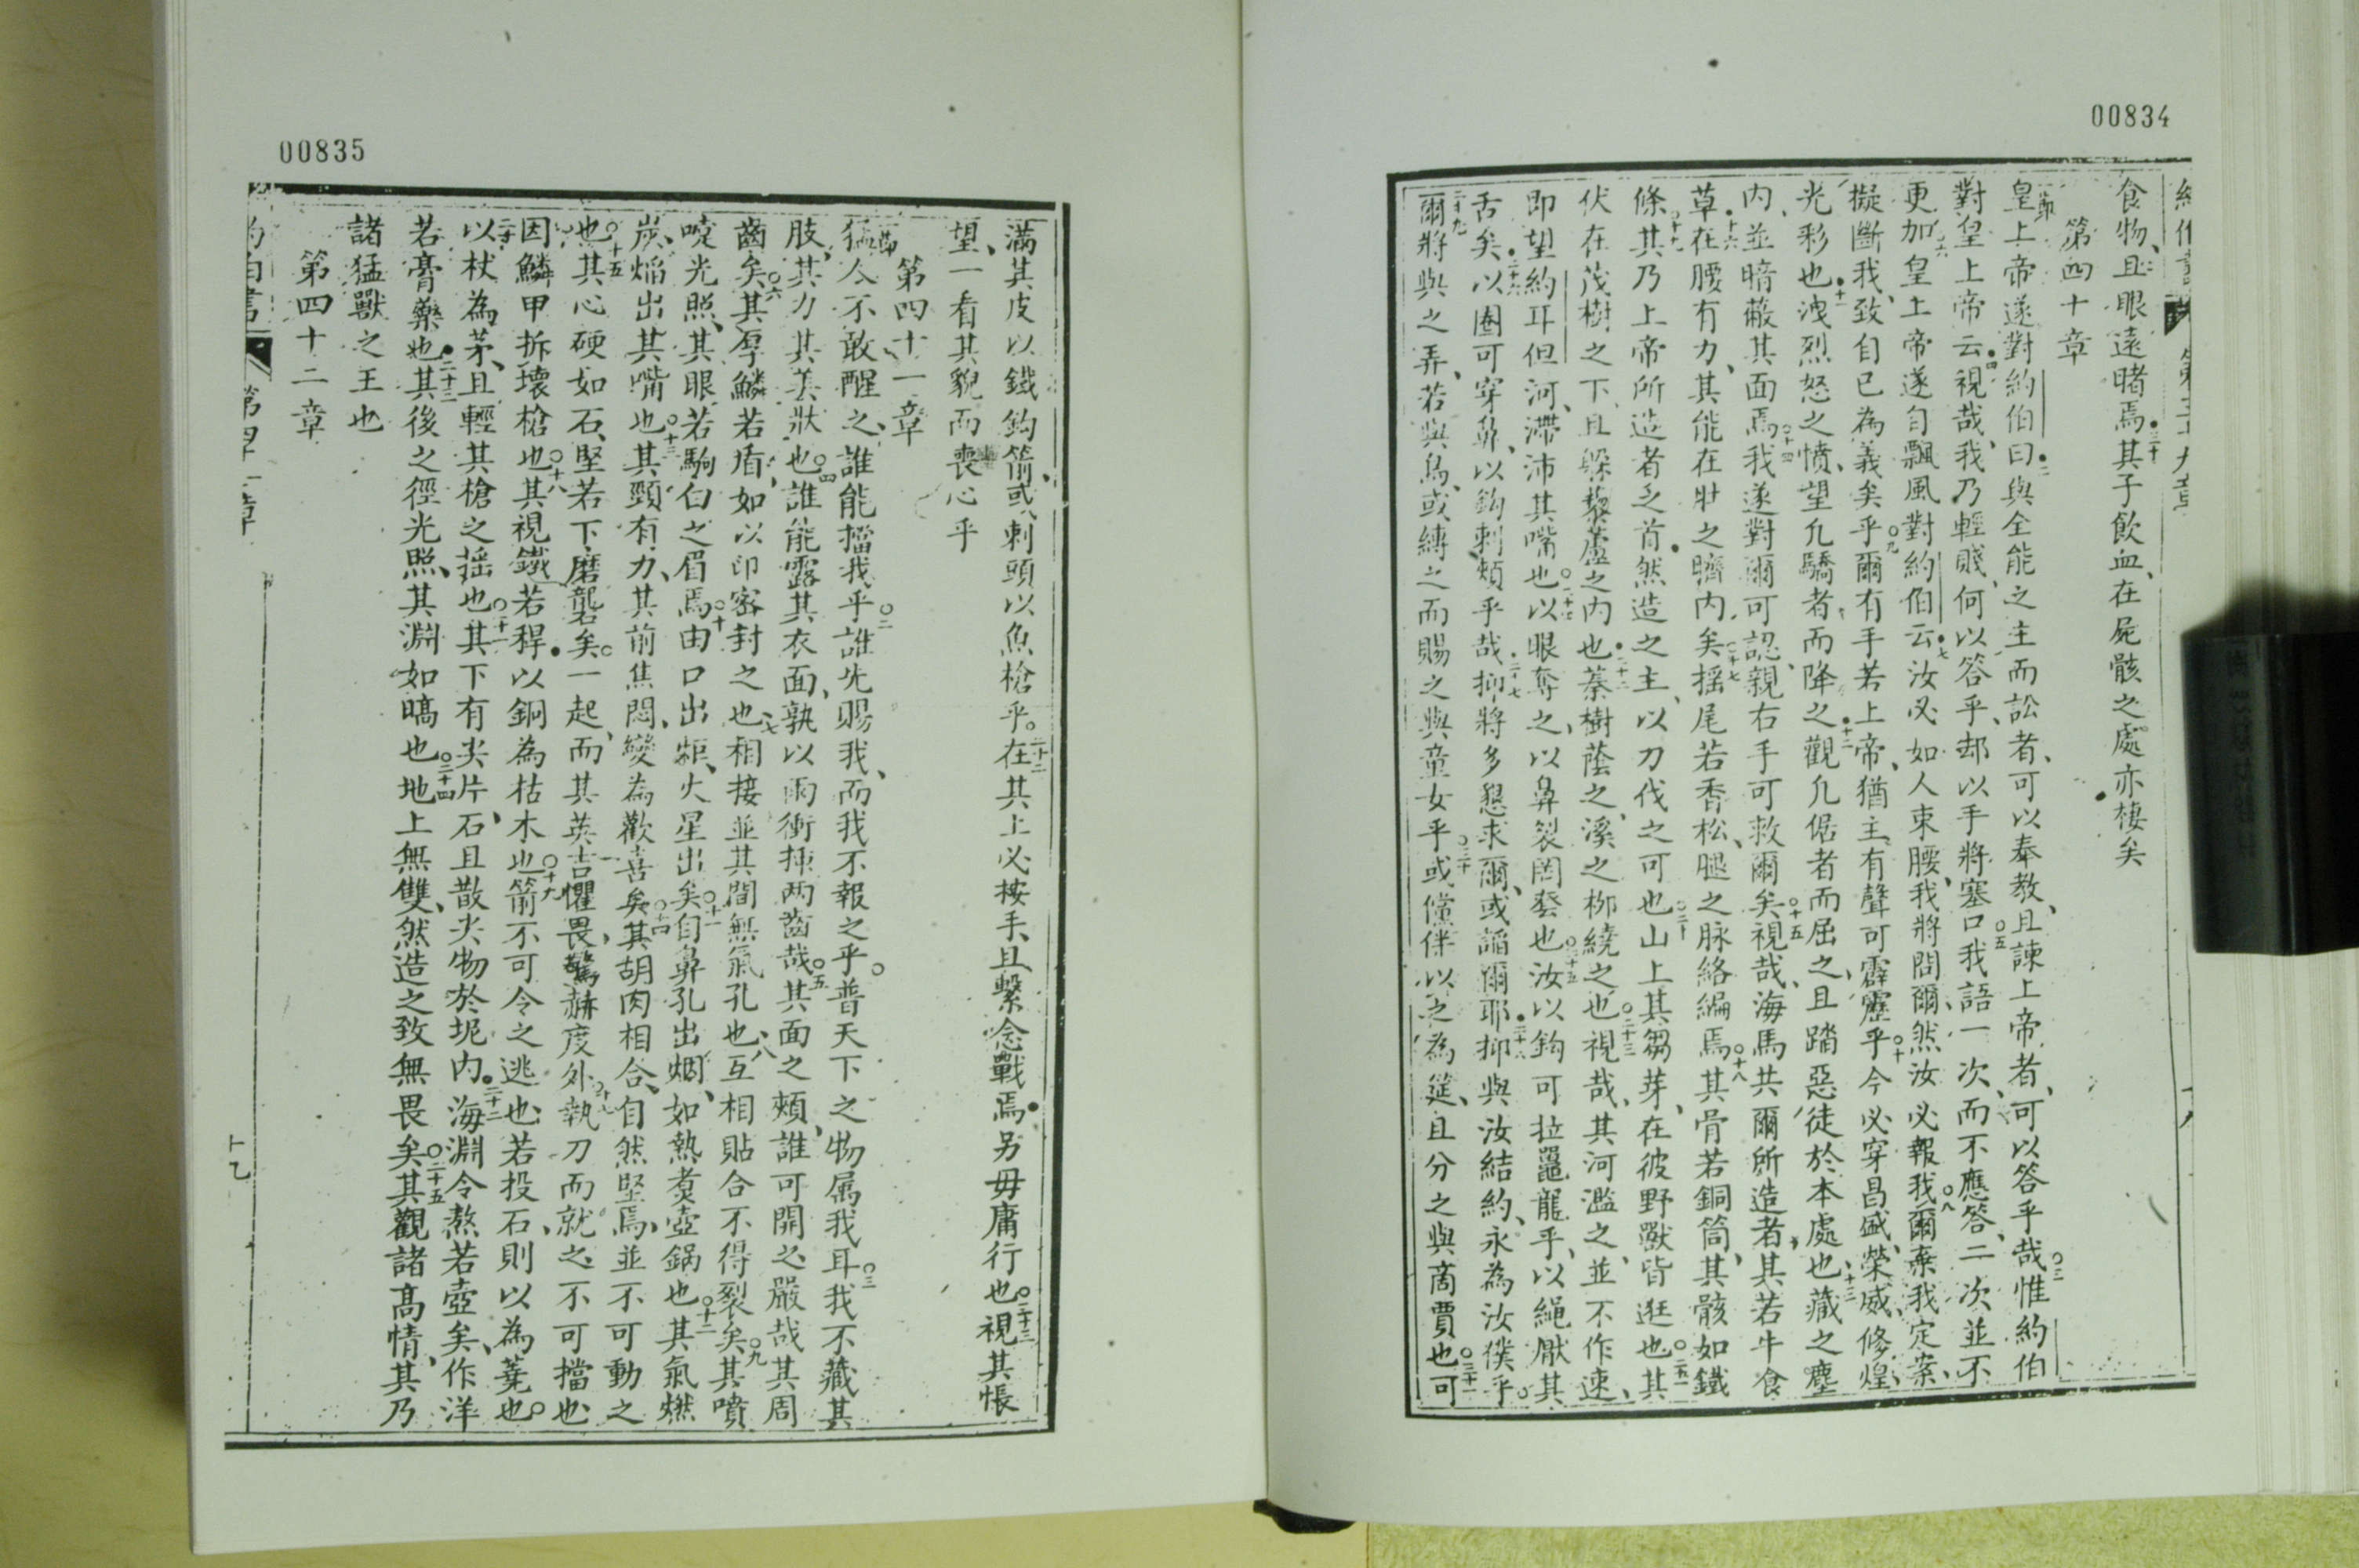 00834
食物、且眼遠睹焉、三十其子飲血、在屍骸之處亦棲矣
第四十章
皇上帝遂對約伯曰、二與全能之主而訟者、可以奉教、且諫上帝者、可以答乎哉、三惟約伯
對皇上帝云、四視哉、我乃輕賤、何以答乎、却以手將塞口、五我語一次、而不應答、二次並不
更加、六皇上帝遂自飄風對約伯云、七汝必如人束腰、我將問爾、然汝必報我、八爾棄我定案、
擬斷我、致自已為義矣乎、九爾有手若上帝、猶主有聲可霹靂乎、十今必穿昌盛、榮威、修煌、
光彩也、十一洩烈怒之憤、望凢驕者而降之、十二觀凢倨者而屈之、且踏惡徒於本處也、十三藏之塵
內、並暗蔽其面焉、十四我遂對爾可認、親右手可救爾矣、十五視哉、海馬共爾所造者、其若牛食
草、十六在腰有力、其能在壯之臍內矣、十七搖尾若香松、腿之脉絡編焉、十八其骨若銅筒、其骸如鐵
條、十九其乃上帝所造者之首、然造之主、以刀伐之可也、二十山上其芻芽、在彼野獸皆逛也、二十一其
伏在茂樹之下、且躲藜蘆之內也、二十二蓁樹蔭之、溪之柳繞之也、二十三視哉、其河濫之、並不作速、
即望約耳但河、滯沛其嘴也、二十四以眼奪之、以鼻裂罔發也、二十五汝以鈎可拉鼉龍乎、以繩厭其
舌矣、二十六以圈可穿鼻、以鈎刺頰乎哉、二十七抑將多懇求爾、或謟爾耶、二十八抑與汝結約、永為汝僕乎、
二十九爾將與之弄、若與鳥、或縛之而賜之與童女乎、三十或儻伴以之為筵、且分之與商賈也、三十一可
00835
滿其皮以鐵鈎箭、或刺頭以魚槍乎、三十二在其上必按手、且繫念戰焉、另毋庸行也、三十三視其悵
望、一看其貌而喪心乎
第四十一章
猛人不敢醒之、誰能擋我乎、二誰先賜我、而我不報之乎、普天下之物属我耳、三我不藏其
肢、其力其美狀也、四誰能露其衣面、孰以雨衝捶两齒哉、五其面之頰、誰可開之、嚴哉其周
齒矣、六其厚鱗若盾、如以印密封之也、七相接並其間無氣孔也、八互相貼合不得裂矣、九其噴
嚏光照、其眼若駒白之眉焉、十由口出炬、火星出矣、十一自鼻孔出烟、如熱煑壺鍋也、十二其氣燃
炭、焰出其嘴也、十三其頸有力、其前焦悶、變為歡喜矣、十四其胡肉相合、自然堅焉、並不可動之
也、十五其心硬如石、堅若下磨礱矣、一起、而其英吉懼畏、驚赫度外、十七執刀而就之、不可擋也、
因鱗甲拆壞槍也、十八其視鐵若稈、以銅為枯木也、十九箭不可令之逃也、若投石、則以為䕠也、
二十以杖為茅、且輕其槍之搖也、二十一其下有尖片、石且散尖物於坭內、二十二海淵令熬若壺矣、作洋
若膏藥也、二十三其後之徑光照、其淵如皜也、二十四地上無雙、然造之致無畏矣、二十五其觀諸高情、其乃
諸猛獸之王也
第四十二章
第四十一章